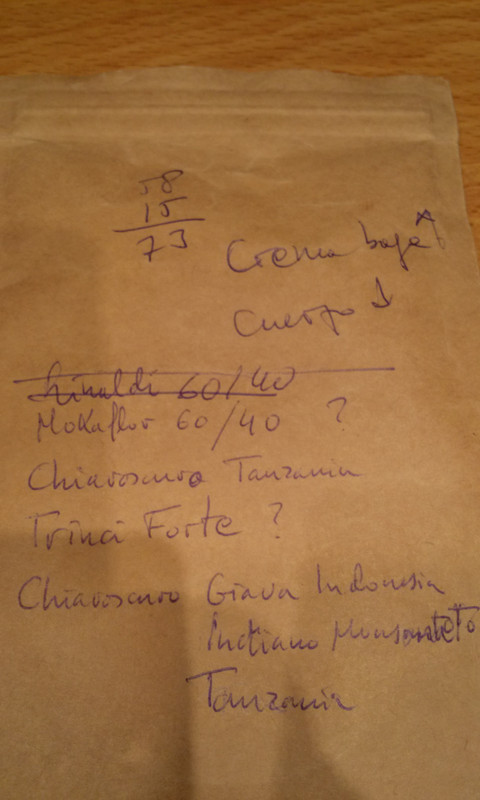 58
15
73
Crema baja ↑
Cuerpo ↓
60/40
Mokaflor 60/40 ?
Chiaroscuro Tanzania
Trinci Forte ?
Chiaroscuro Giava Indonesia
Indiano
Tanzania